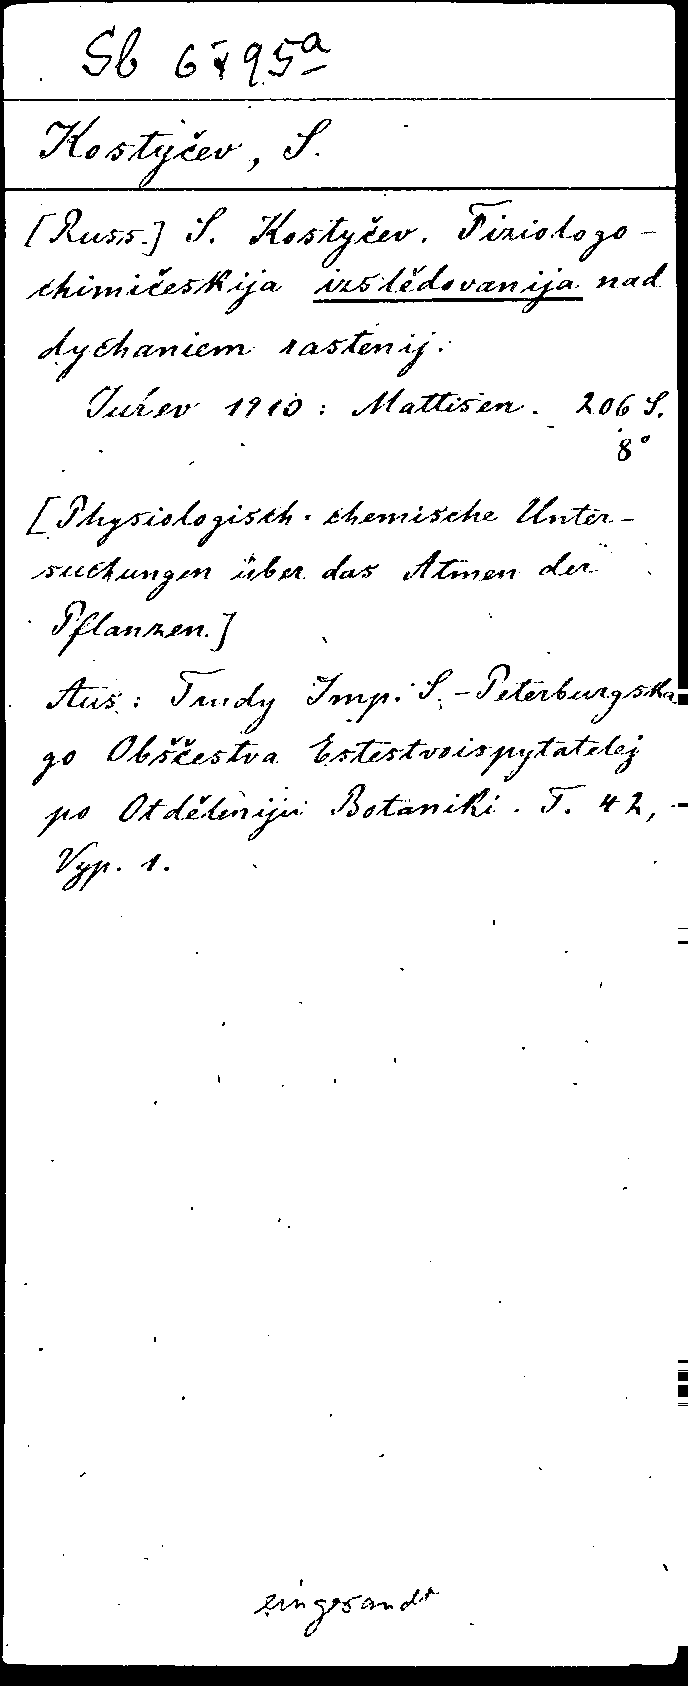 Sb 6795a
Kostyčev, S.
[Russ.] S. Kostyčev. Fiziologo-
chimičeskija izslědovanija nad
dychaniem rastenij.
Jur'ev 1910: Mattisen. 206 S.
8°
[Physiologisch-chemische Unter-
suchungen über das Atmen der
Pflanzen.]
Aus: Trudy Imp. S.-Peterburgska
go Obščestva Estestvoispytatelej
po Otděleniju Botaniki. T. 42,
Vyp. 1.
eingesandt